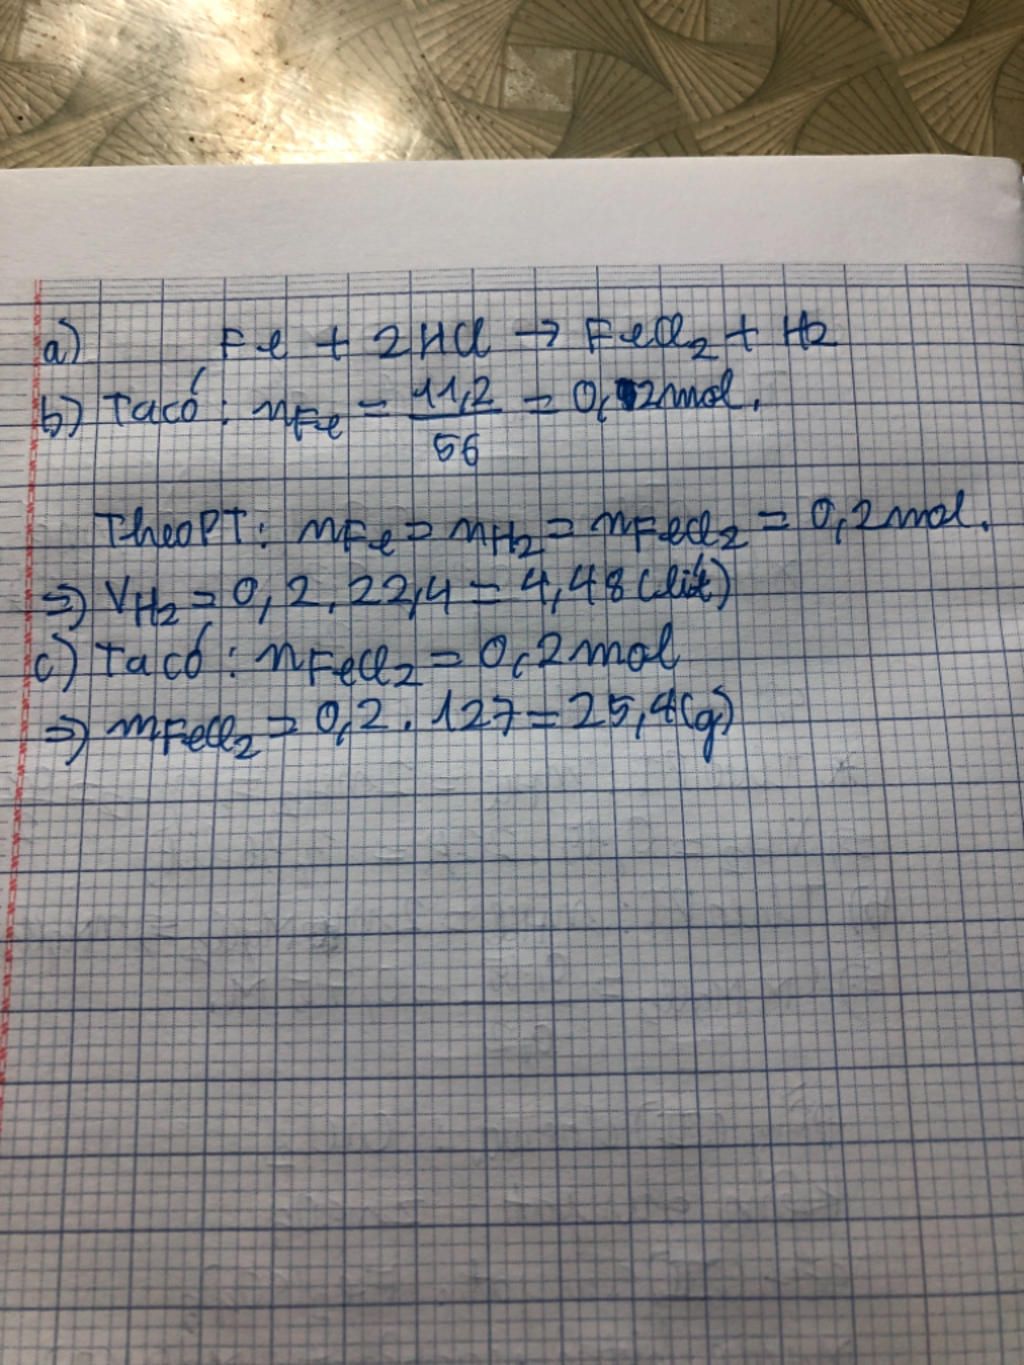 a) Fe + 2HCl → FeCl2 + H2
b) Ta có : nFe = 11,2 / 56 = 0,2 mol.
Theo PT : nFe = nH2 = nFeCl2 = 0,2 mol.
=> VH2 = 0,2 . 22,4 = 4,48 (lít)
c) Ta có : nFeCl2 = 0,2 mol
=> mFeCl2 = 0,2 . 127 = 25,4 (g)